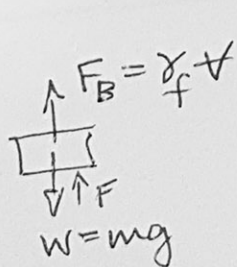 F_B = γ_f ∀
F
W = mg